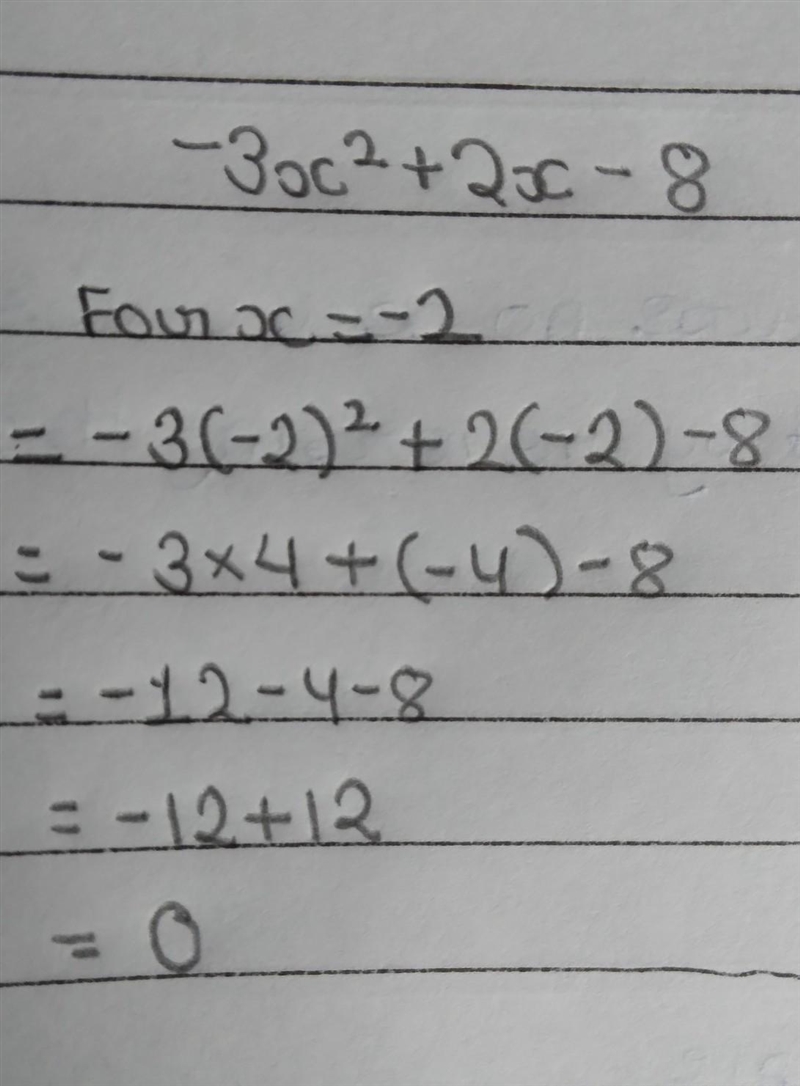 -3x² + 2x - 8
Four x = -2
= -3(-2)² + 2(-2) - 8
= -3×4 + (-4) - 8
= -12 - 4 - 8
= -12 + 12
= 0